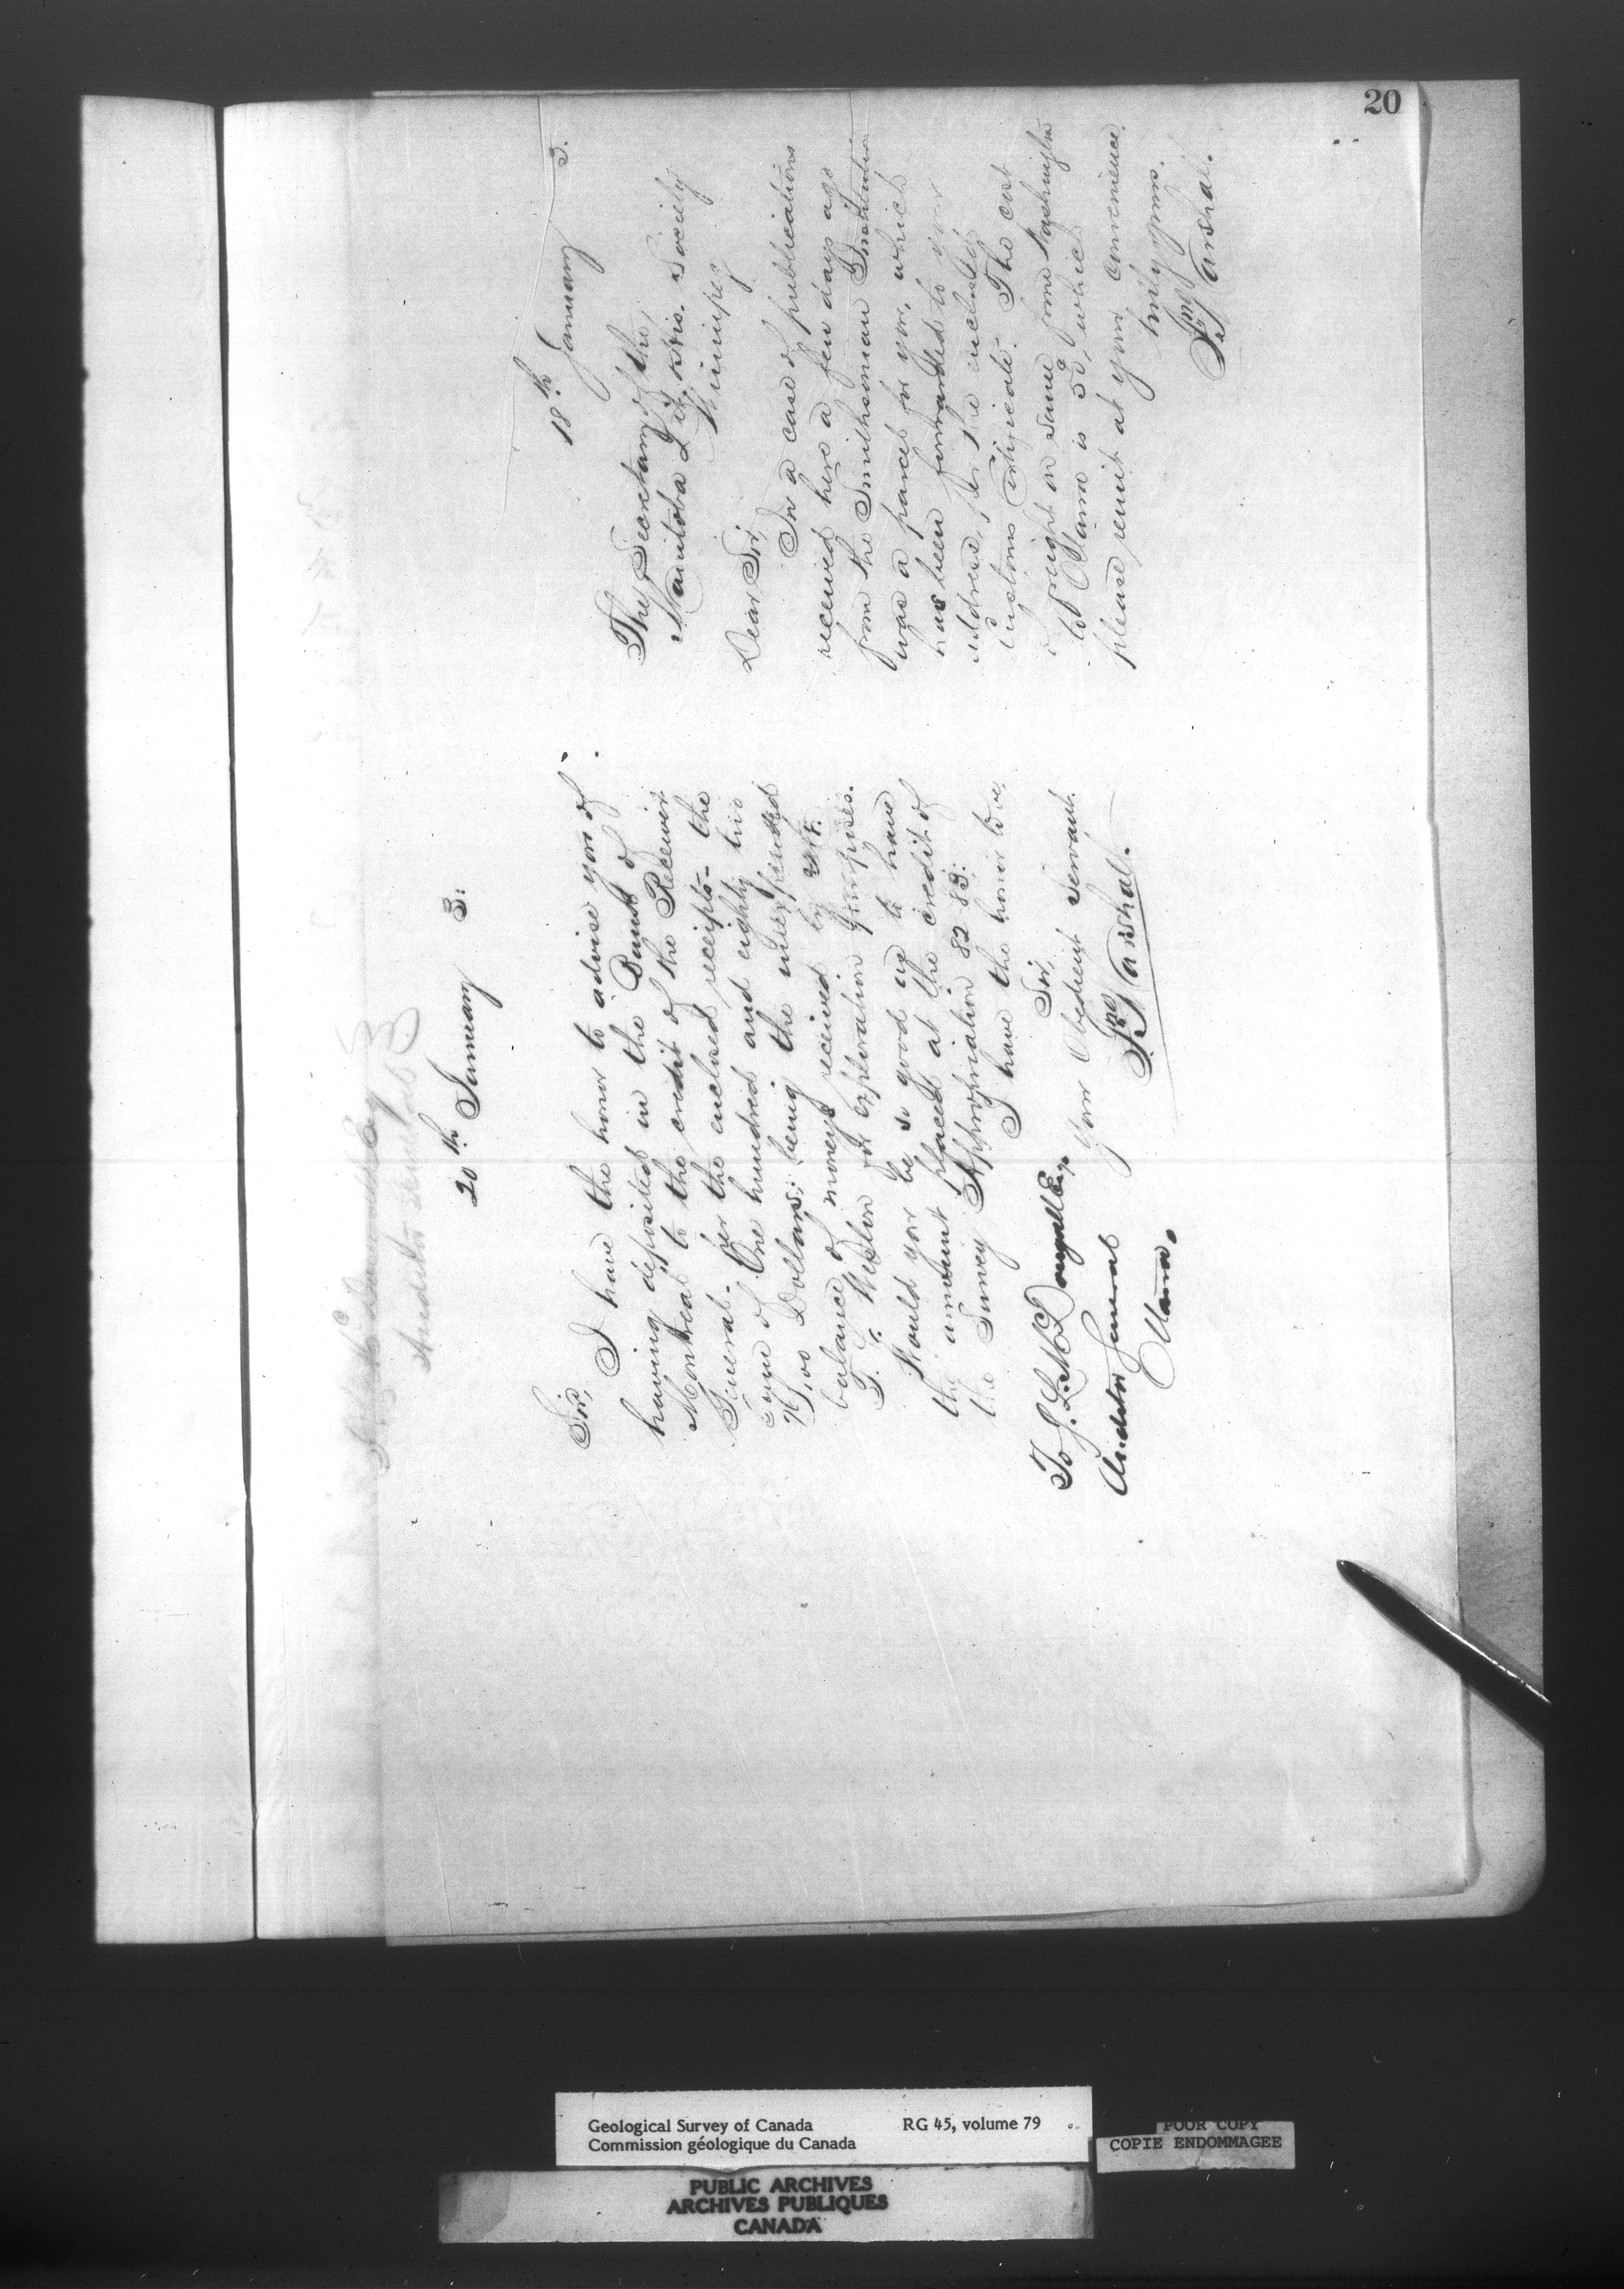 20
18th January 3.
The Secretary of the
Manitoba Lit. & His. Society
Winnipeg
Dear Sir,
In a case of publications
received here a few days ago
from the Smithsonian Institution
was a parcel for you, which
has been forwarded to your
address, per the enclosed
Customs Certificate. The cost
of freight on same from Washington
to Ottawa is 50, which
please remit at your convenience.
truly yours.
Jno Marshall.
20th January 3:
Sir,
I have the honor to advise you of
having deposited in the Bank of
Montreal to the credit of the Receiver
General - per the enclosed receipts - the
sum of One hundred and eighty two
Dollars; being the unexpended
balance of moneys received by
T. C. Weston for exploration purposes.
Would you be so good as to have
the amount placed at the credit of
the Survey Appropriation 82 83:
I have the honor to be,
Sir,
Your Obedient Servant.
Jno Marshall.
To J. L. McDougall Esq
Auditor General
Ottawa.
Auditor General
Geological Survey of Canada RG 45, volume 79
Commission géologique du Canada
POOR COPY
COPIE ENDOMMAGEE
PUBLIC ARCHIVES
ARCHIVES PUBLIQUES
CANADA